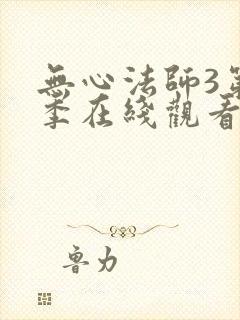 無心法師3第
季在綫觀看
魯力